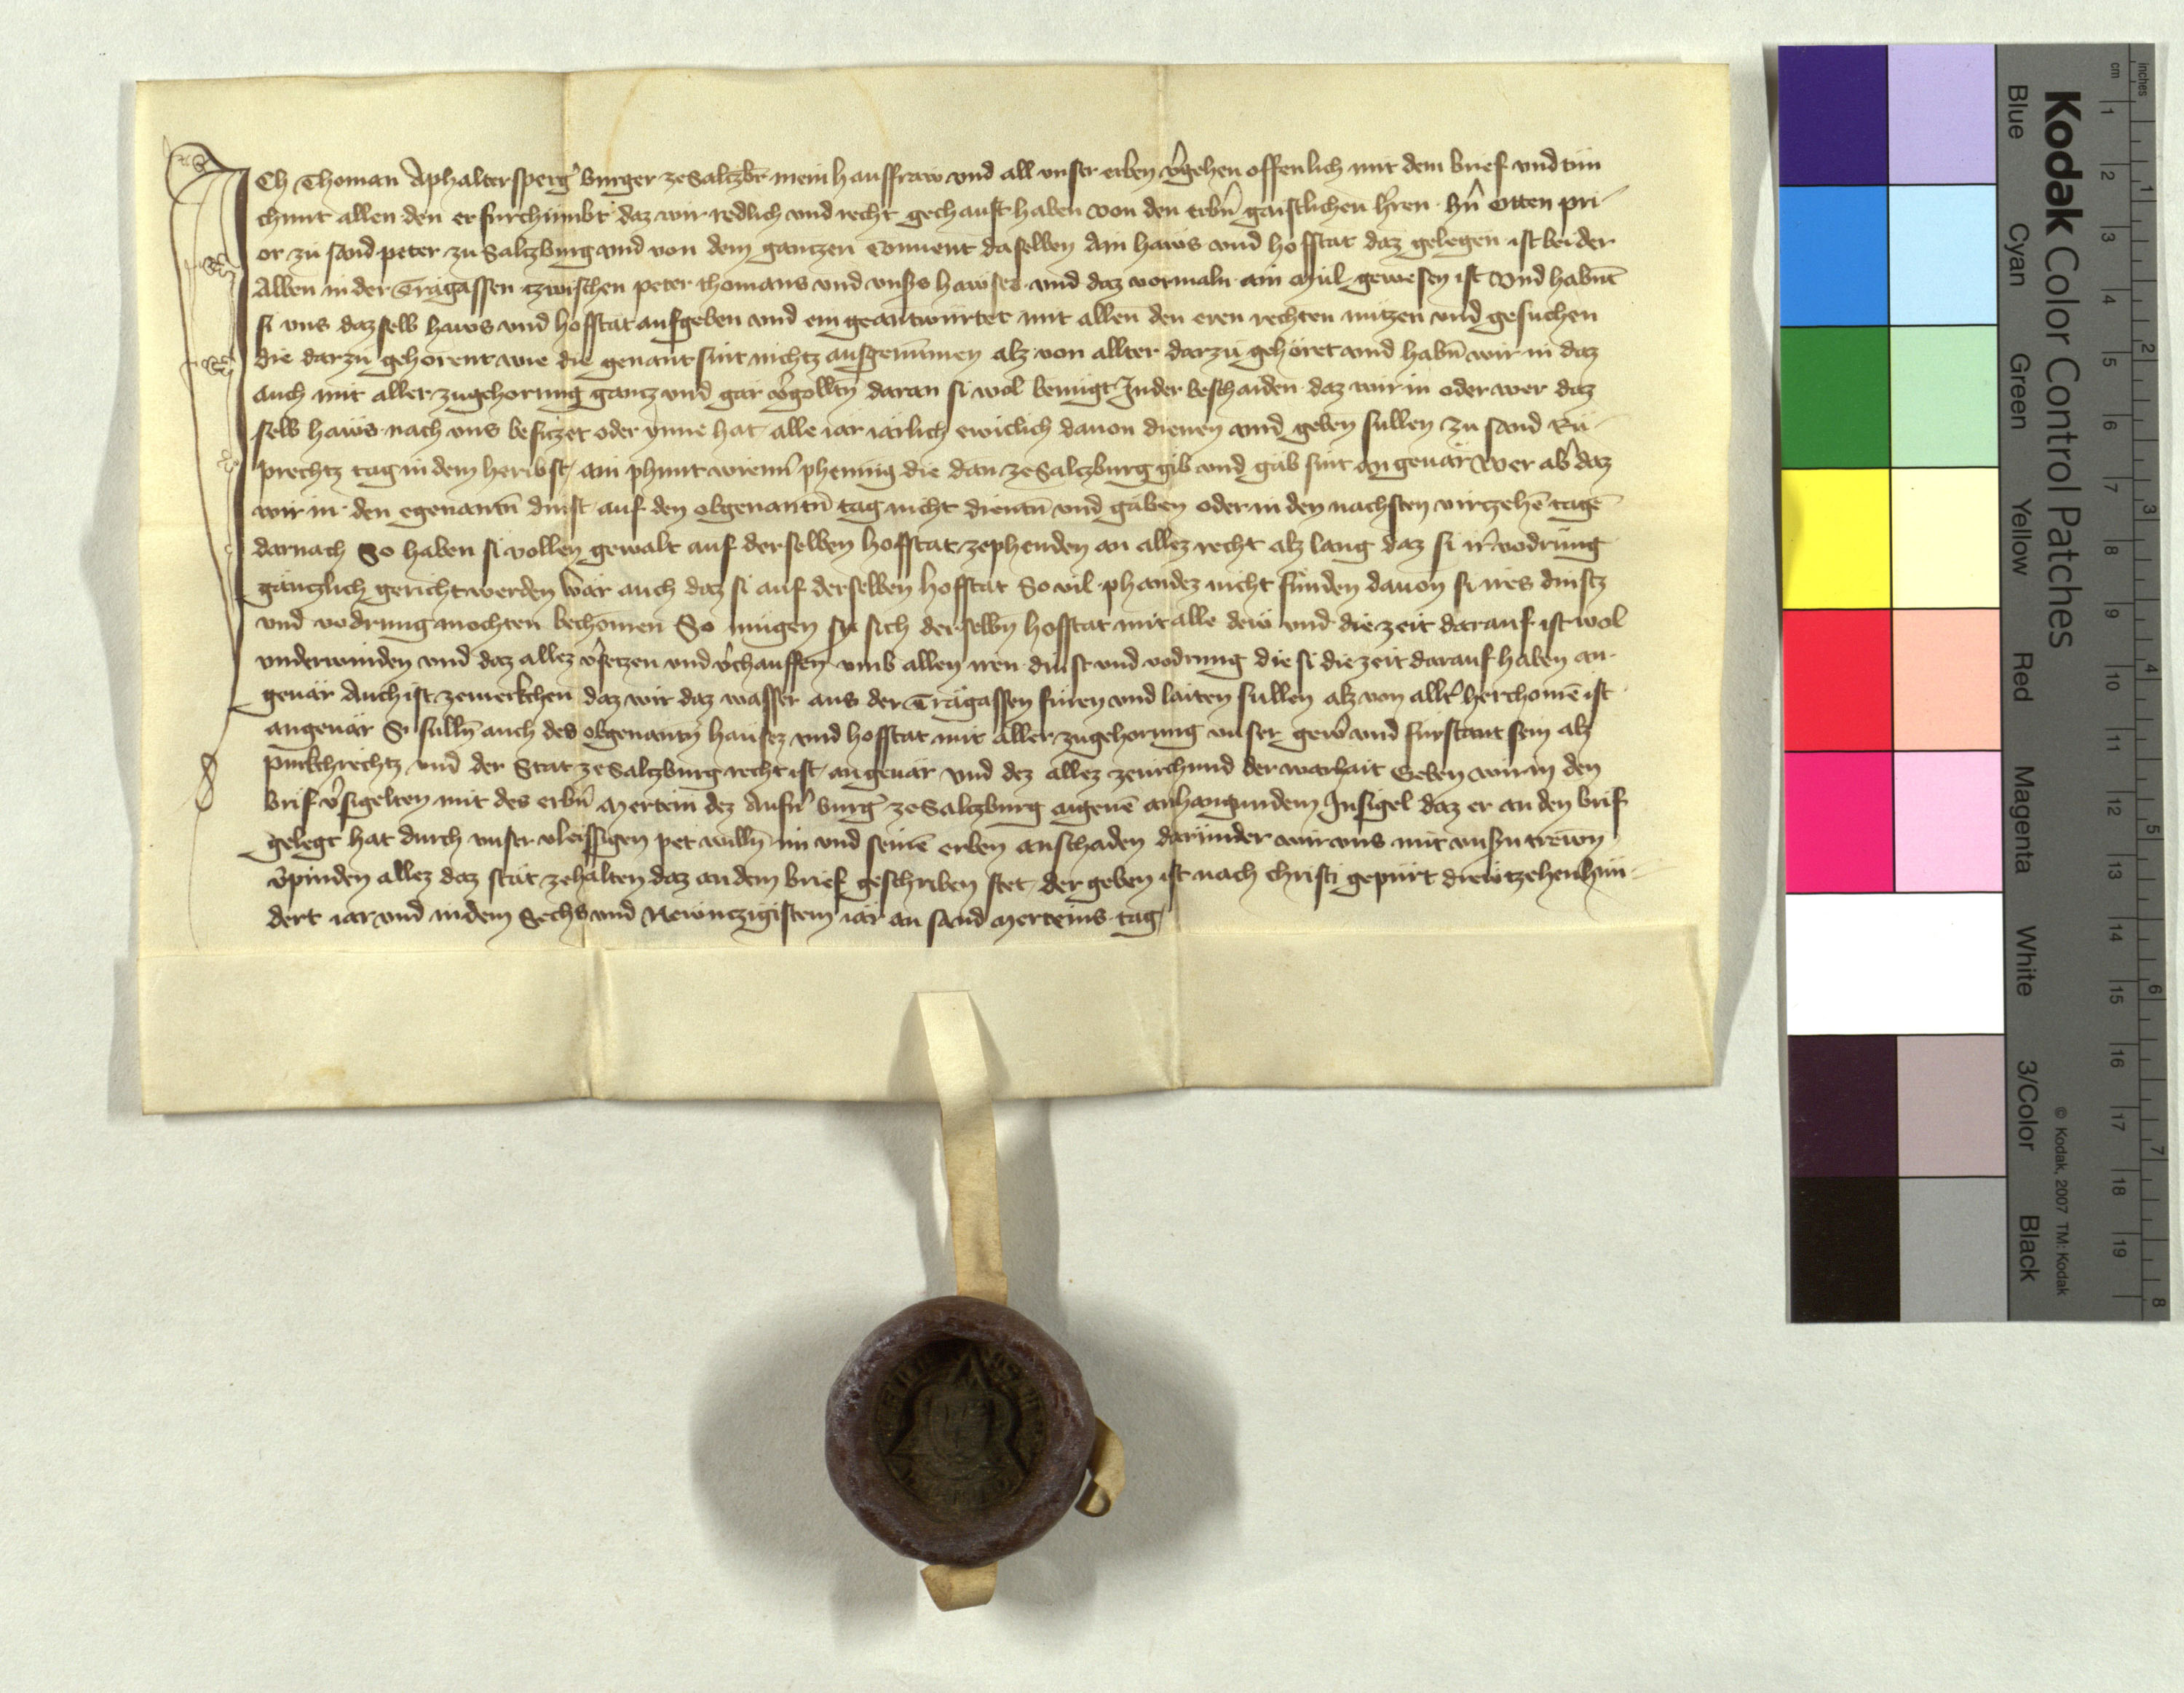 ICh Thoman Aphaltersperg̕ burger ze Saltzb̄r mein hausfraw vnd all vnser erben v̕gehen offenlich mit dem brief vnd tún
chunt allen den er fúrchúmbt daz wir redlich vnd recht gechauft haben von den erbn̄ gaistlichen h̕ren hn̄ Otten pri-
or zú sand peter zu Saltzburg vnd von dem gantzen Conuent daselben Ain haws vnd hofstat daz gelegen ist bei der
Alben in der Trägassen tzwischen peter thomans vnd vnsers hawses vnd daz vormaln ain múl gewesen ist Vnd habn̄t
si vns dazselb haws vnd hofstat aufgeben vnd ein geantwúrtet mit allen den eren rechten nútzen vnd gesuchen
die darzú gehörent wie die genant sint nichtz ausgenúmen alz von allter darzú gehöret vnd habn̄ wir in daz
auch mit aller zúgehorung gantz vnd gar v̕golten daran si wol benúgt In der beschaiden daz wir in oder wer daz
selb haẃs nach vns besitzet oder ynne hat alle iar iärlich ewiclich dauon dienen vnd geben súllen zu sand Rú-
prechtz tag in dem heribst ain phunt wienn̄ phenning die dan ze Saltzburg gib vnd gäb sint an geuär Wer ab̕ daz
wir in den egenantn̄ dinst auf den obgenantn̄ tag nicht dientn̄ vnd gäben oder in den nachsten virzehē tagē
darnach So haben si vollen gewalt auf derselben hofstat ze phenden an allez recht alz lang daz si ir̕ vodrúng
gäntzlich gericht werden Wär auch daz si auf derselben hofstat So vil phandez nicht fúnden dauon si irs dinstz
vnd vodrung mochten bechömen So múgen sy sich derselbn̄ hofstat mit alle dew vnd die zeit darauf ist wol
vnderwinden vnd daz allez v̕setzen vnd v̕chauffen vmb allen iren dinst vnd vodrung die si die zeit darauf haben an-
geuär Auch ist zemerkchen daz wir daz wasser aus der Trägassen fúren vnd laiten súllen alz von allt̕ herchomē ist
angeuär Si sullē auch des obgenantn̄ hauses vnd hofstat mit aller zugehorung vnser gew̕ vnd fúrstant sein alz
purkchrechtz vnd der Stat ze Saltzburg recht ist angeuär vnd dez allez zeúrchund der warhait Geben wir in den
brif v̕sigelten mit des erbn̄ Mertein dez Aufn̄ burg̕ ze Saltzburg aigenē anhangundem Insigel daz er an den brif
gelegt hat durch vnser vleissigen pet willn̄ im vnd seinē erben anschaden darúnder wir vns mit vnsn̄ trewn
v̕pinden allez daz stät zehalten daz an dem brief geschriben stet der geben ist nach Christi gepúrt drewtzehenhún-
dert iar vnd in dem Sechs vnd Newntzigistem iar an sand Merteins tag
Kodak Color Control Patches
Blue Cyan Green Yellow Red Magenta White 3/Color Black
© Kodak, 2007 TM: Kodak
cm 1 2 3 4 5 6 7 8 9 10 11 12 13 14 15 16 17 18 19
inches 1 2 3 4 5 6 7 8